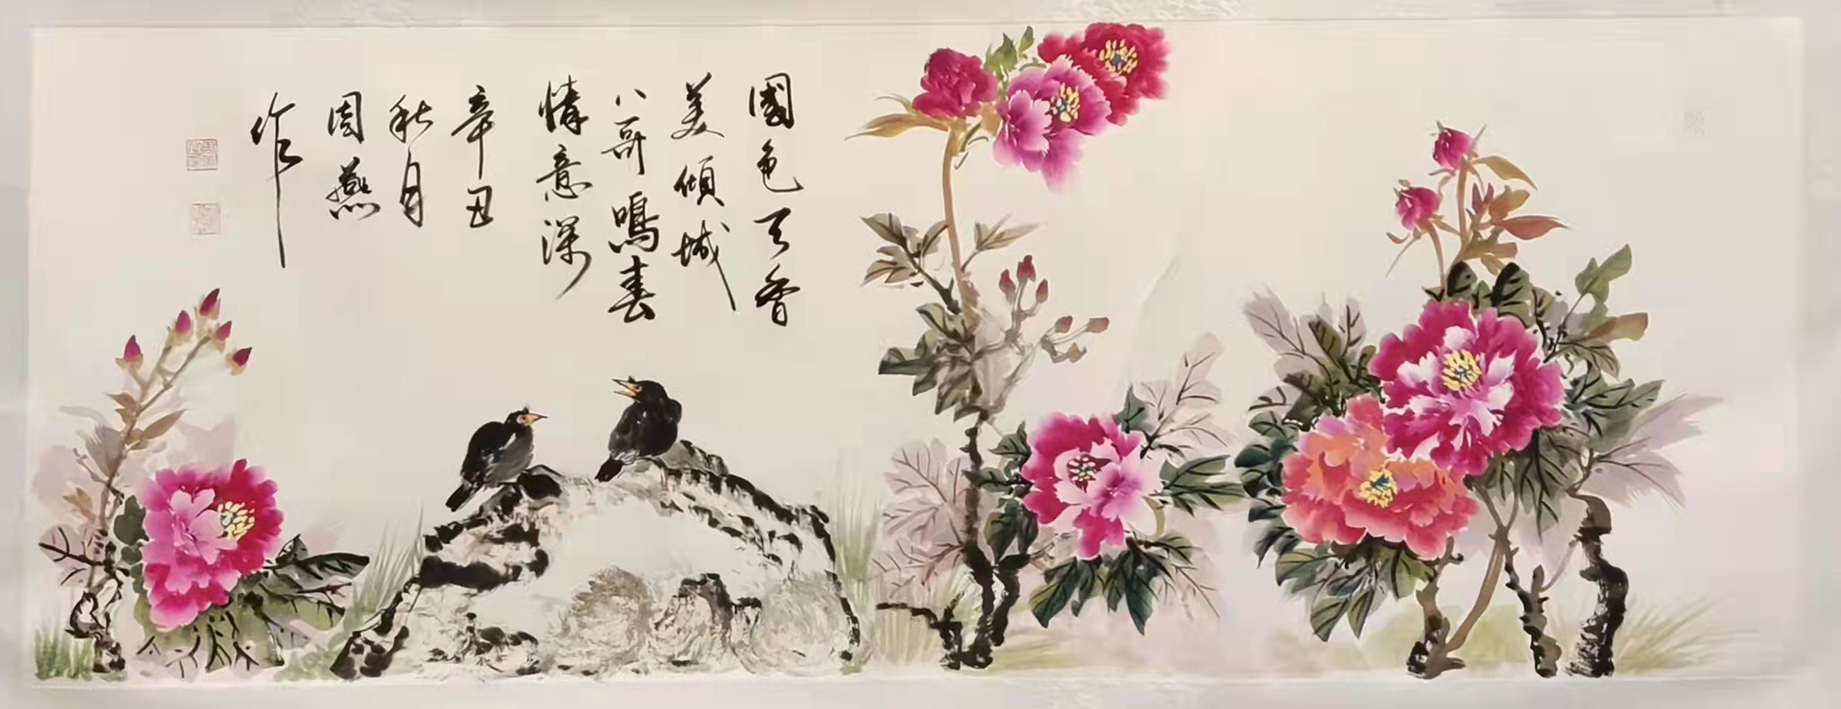 國色天香
美傾城
八哥鳴春
情意深
辛丑
秋月
周燕
作